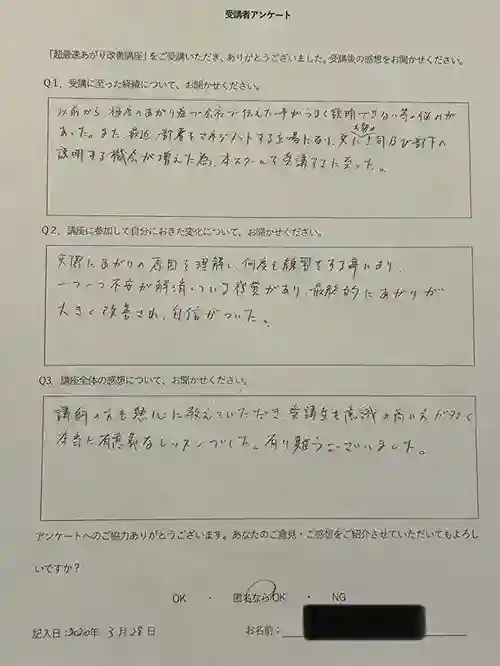 受講者アンケート
「超最速あがり改善講座」をご受講いただき、ありがとうございました。受講後の感想をお聞かせください。
Q1．受講に至った経緯について、お聞かせください。
以前から、極度のあがり症で会社で伝えたい事がうまく説明できない等の悩みが
あった。また、最近、部署をマネジメントする立場になり、更に上司及び部下の
説明する機会が増えた為、本スクールを受講するに至った。
Q2．講座に参加して自分におきた変化について、お聞かせください。
実際にあがりの原因を理解し、何度も練習をする事により、
一つ一つ不安が解消している実感があり、最終的にあがりが
大きく改善され、自信がついた。
Q3．講座全体の感想について、お聞かせください。
講師の方も熱心に教えていただき受講生も意識の高い方が多く
本当に有意義なレッスンでした。有り難うございました。
アンケートへのご協力ありがとうございます。あなたのご意見・ご感想をご紹介させていただいてもよろし
いですか？
OK ・ 匿名ならOK ・ NG
記入日：2020年 3月28日 お名前：